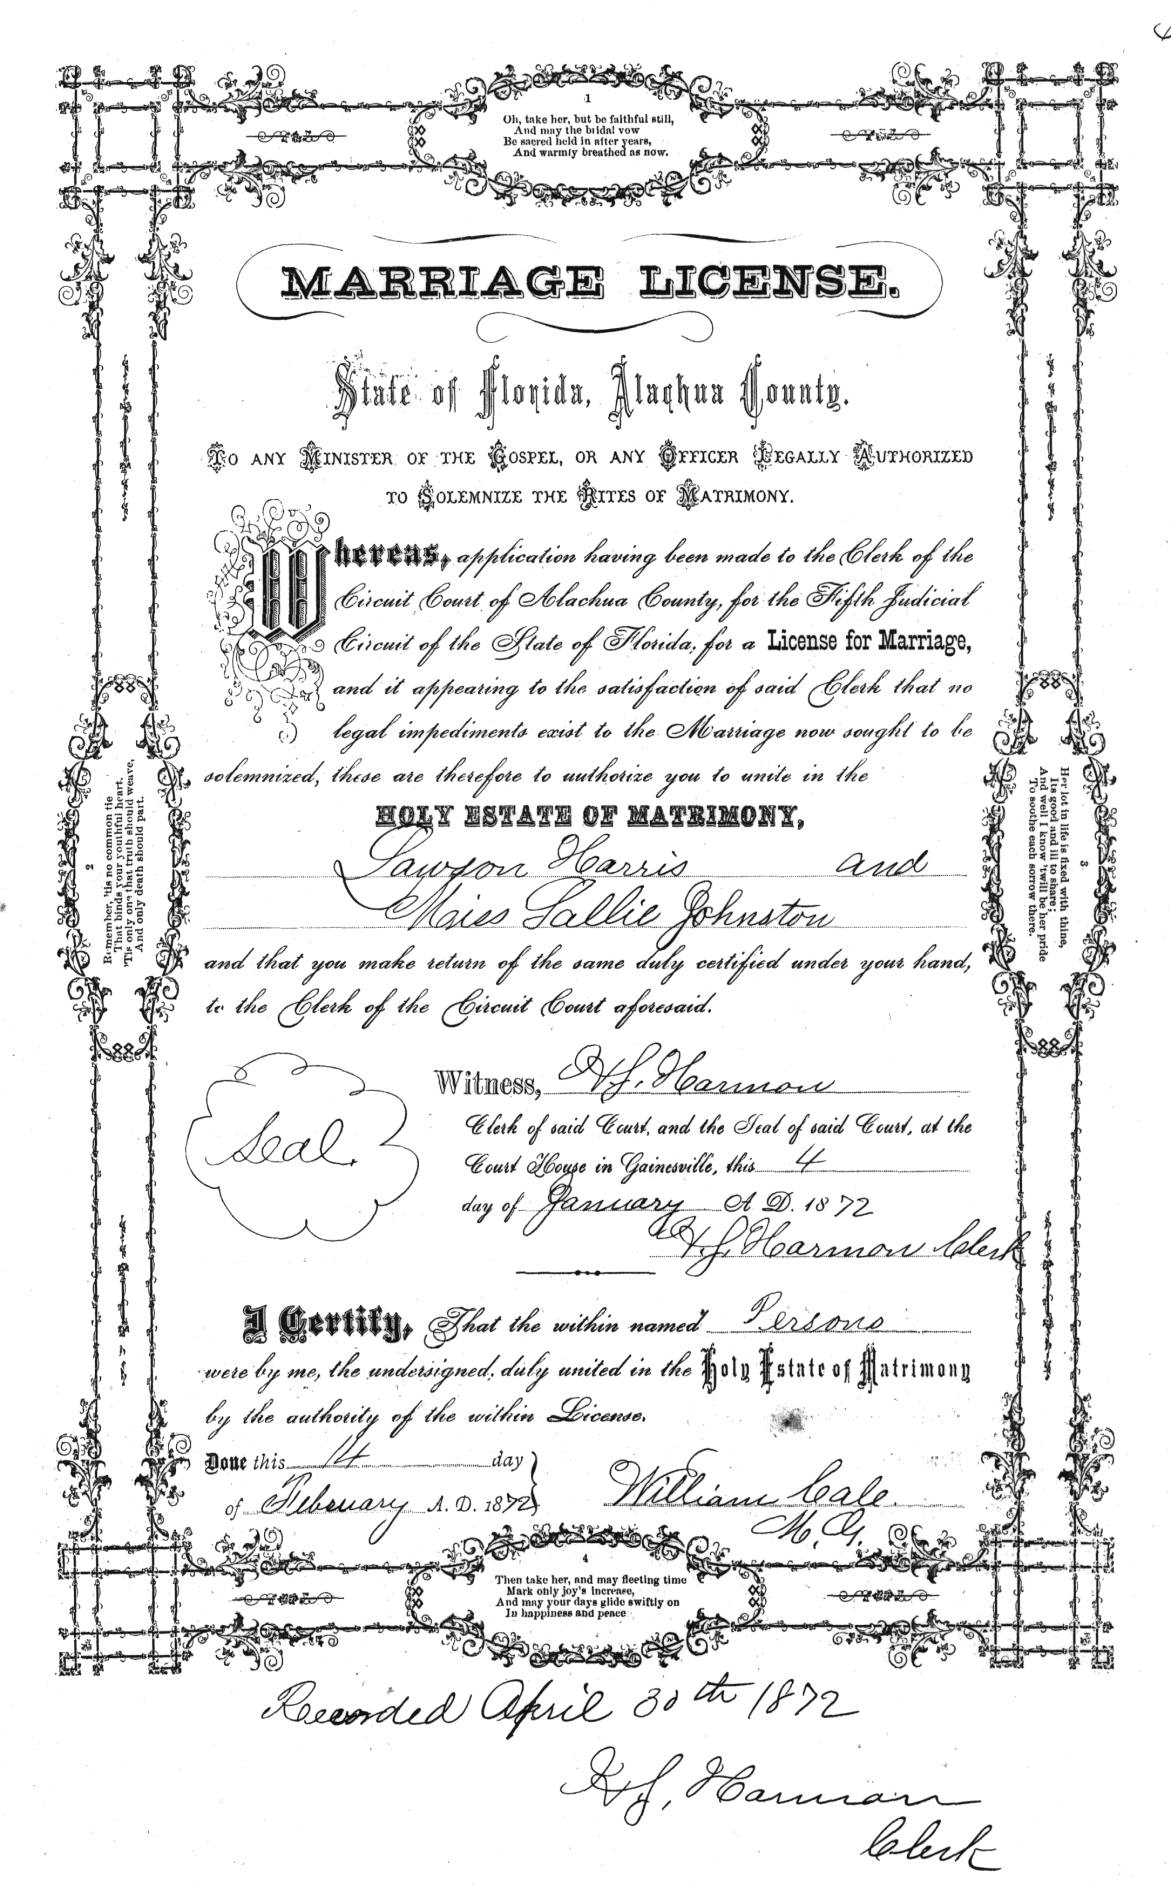 1
Oh, take her, but be faithful still,
And may the bridal vow
Be sacred held in after years,
And warmly breathed as now.
MARRIAGE LICENSE.
State of Florida, Alachua County.
TO ANY MINISTER OF THE GOSPEL, OR ANY OFFICER LEGALLY AUTHORIZED
TO SOLEMNIZE THE RITES OF MATRIMONY.
Whereas, application having been made to the Clerk of the
Circuit Court of Alachua County, for the Fifth Judicial
Circuit of the State of Florida, for a License for Marriage,
and it appearing to the satisfaction of said Clerk that no
legal impediments exist to the Marriage now sought to be
solemnized, these are therefore to authorize you to unite in the
HOLY ESTATE OF MATRIMONY,
Lawson Harris and
Miss Sallie Johnston
and that you make return of the same duly certified under your hand,
to the Clerk of the Circuit Court aforesaid.
2
Remember, 'tis no common tie
That binds your youthful heart,
'Tis only one that truth should weave,
And only death should part.
3
Her lot in life is fixed with thine,
Its good and ill to share;
And well I know 'twill be her pride
To soothe each sorrow there.
Seal.
Witness, H.S. Harmon
Clerk of said Court, and the Seal of said Court, at the
Court House in Gainesville, this 4
day of January A D. 1872
H.S. Harmon Clerk
I Certify, That the within named Persons
were by me, the undersigned, duly united in the Holy Estate of Matrimony
by the authority of the within License.
Done this 14 day
of February A. D. 1872
William Cale.
M. G.
4
Then take her, and may fleeting time
Mark only joy's increase,
And may your days glide swiftly on
In happiness and peace
Recorded April 30th 1872
H.S. Harmon
Clerk